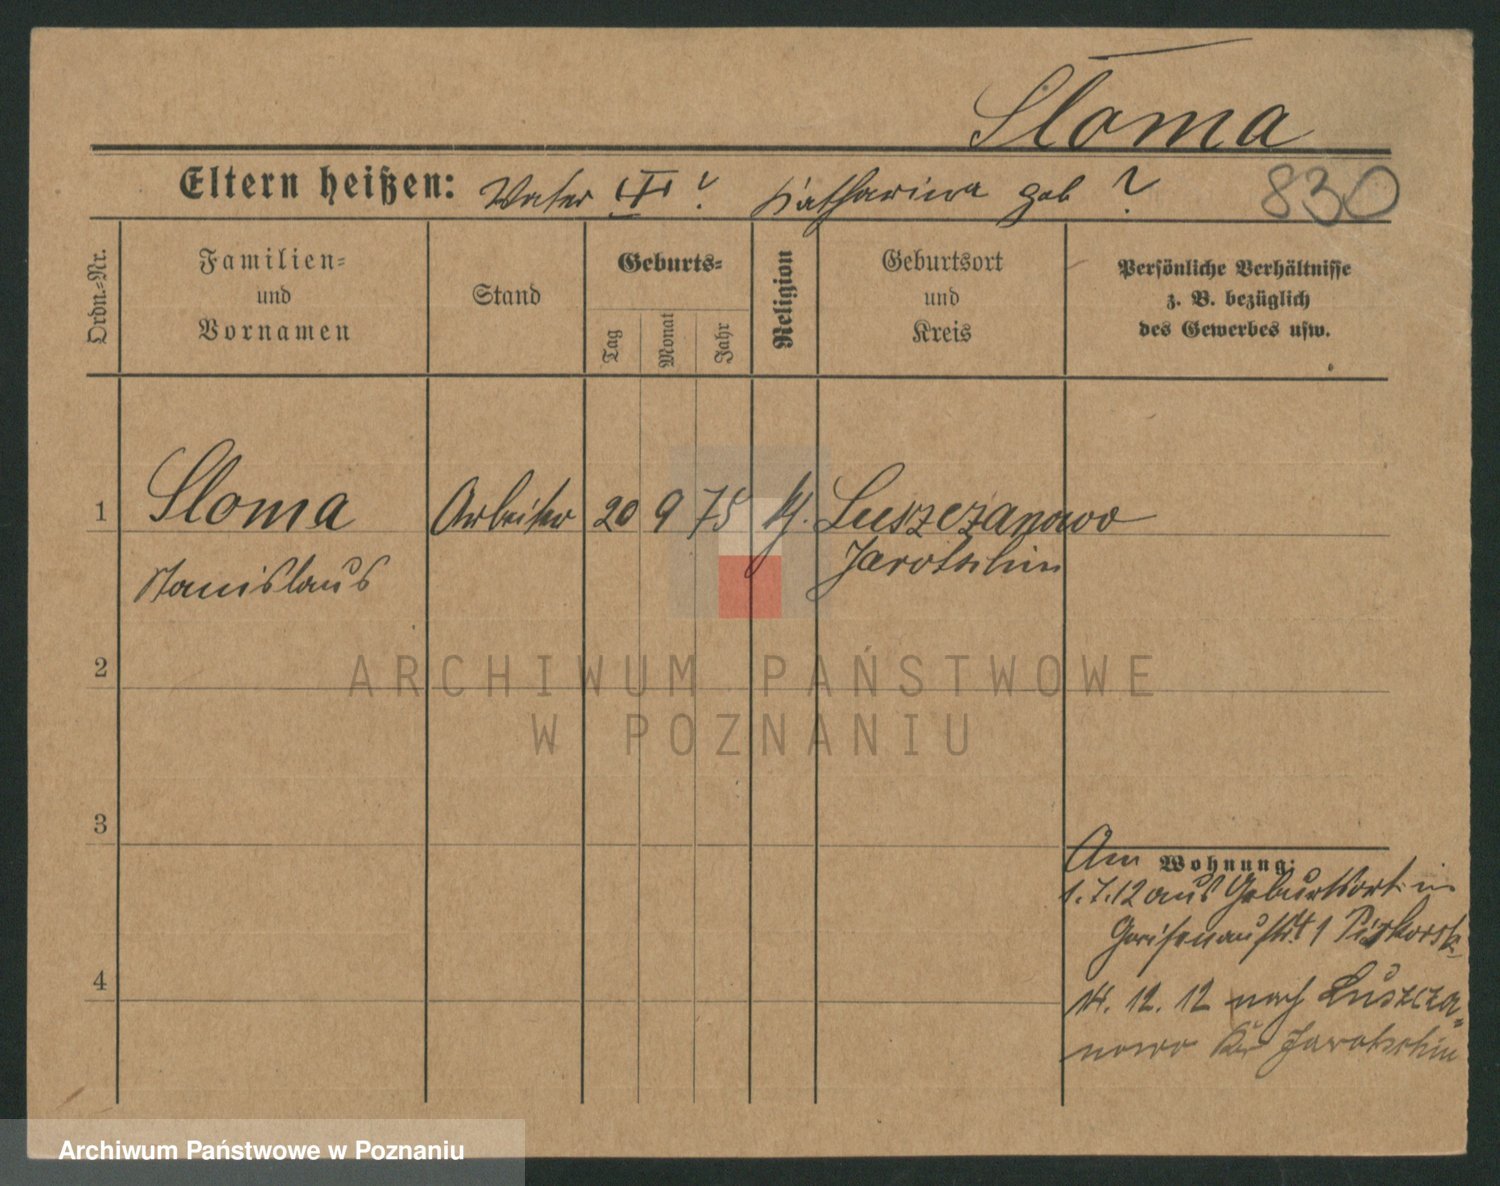 Sloma
Eltern heißen: Vater ? Katharina geb ?
830
Ordn.-Nr.
Familien-
und
Vornamen
Stand
Geburts-
Tag
Monat
Jahr
Religion
Geburtsort
und
Kreis
Persönliche Verhältnisse
z. B. bezüglich
des Gewerbes usw.
1 Sloma Arbeiter 20 9 75 k. Luszczanowo
Stanislaus Jarotschin
2
ARCHIWUM PAŃSTWOWE
W POZNANIU
3
Wohnung:
Am
1.7.12 aus Geburtsort in
1
4
14. 12. 12 nach Luszcza-
nowo Kr Jarotschin
Archiwum Państwowe w Poznaniu